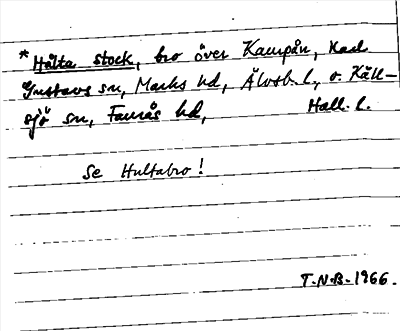 * Hålta stock, bro över Kaupån, Karl
Gustavs sn, Marks hd, Älvsb. l., o. Käll-
sjö sn, Faurås hd, Hall. l.
Se Hultabro!
T.N.B. 1966.